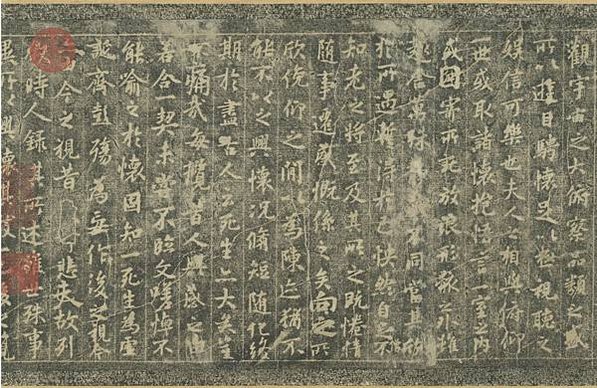 觀宇宙之大俯察品類之盛
所以遊目騁懷足以極視聽之
娛信可樂也夫人之相與俯仰
一世或取諸懷抱悟言一室之內
或因寄所託放浪形骸之外雖
趣舍萬殊靜躁不同當其欣
於所遇暫得於己快然自足不
知老之將至及其所之既惓情
隨事遷感慨係之矣向之所
欣俛仰之間以為陳迹猶不
能不以之興懷況脩短隨化終
期於盡古人云死生亦大矣豈
不痛哉每攬昔人興感之由
若合一契未嘗不臨文嗟悼不
能喻之於懷固知一死生為虛
誕齊彭殤為妄作後之視今
亦今之視昔悲夫故列
敘時人錄其所述雖世殊事
異所以興懷其致